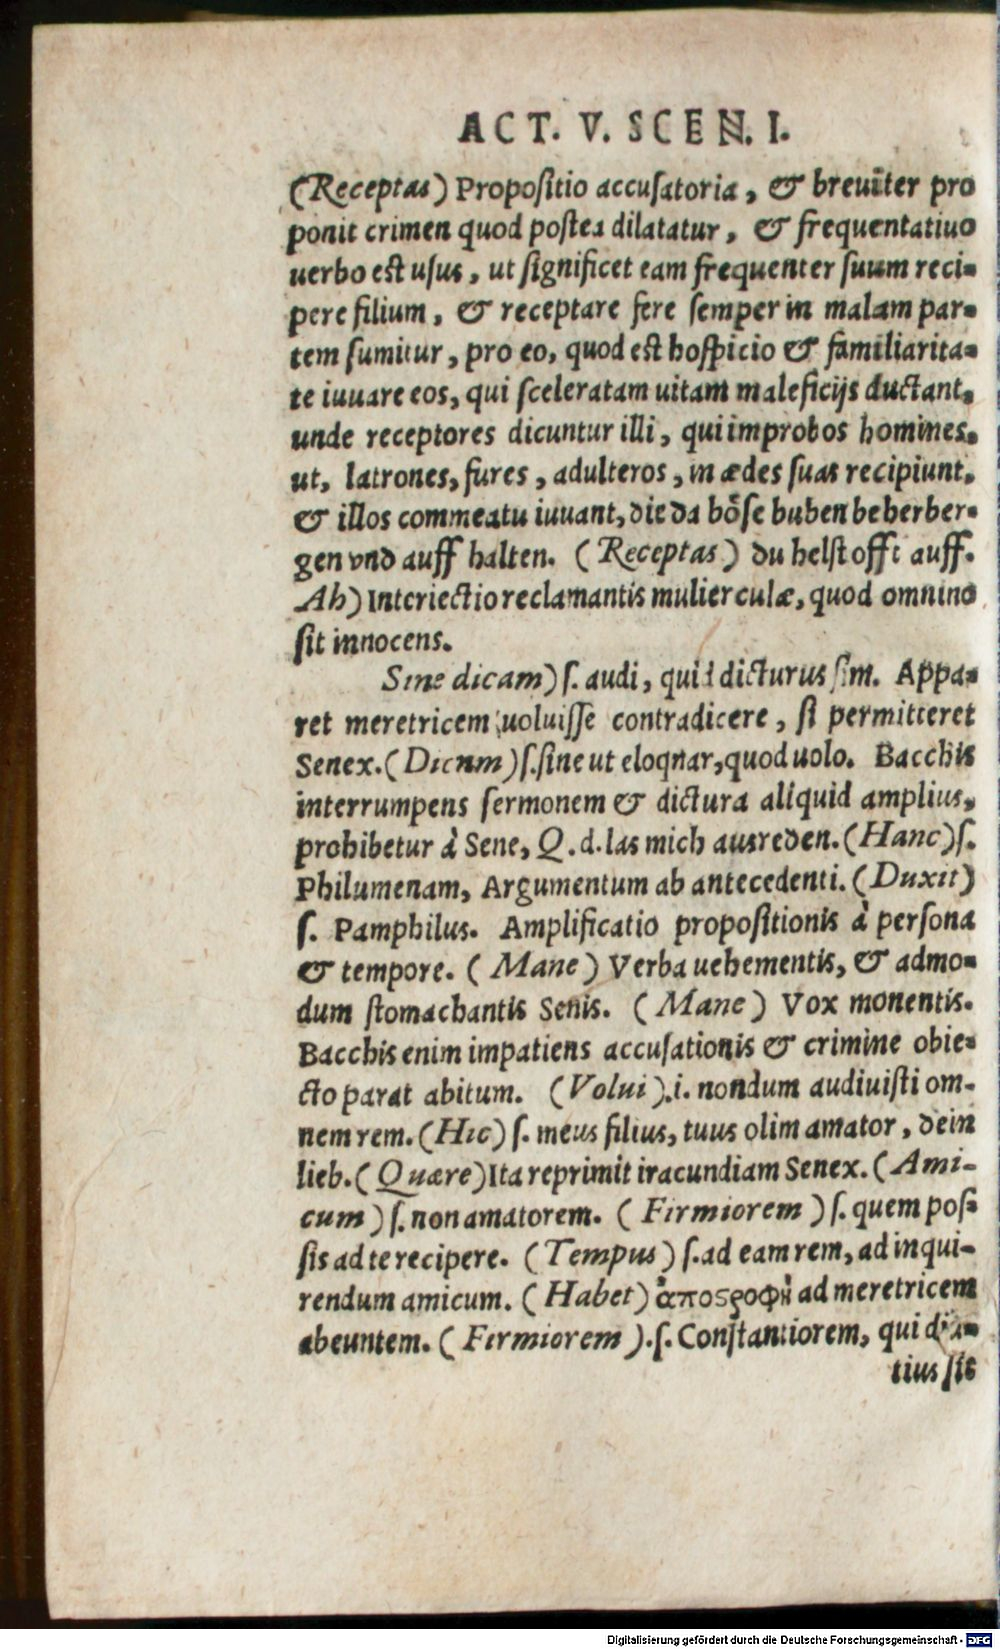 ACT. V. SCEN. I.
(Receptas) Propositio accusatoria, & breuiter pro
ponit crimen quod postea dilatatur, & frequentatiuo
uerbo est usus, ut significet eam frequenter suum reci-
pere filium, & receptare fere semper in malam par-
tem sumitur, pro eo, quod est hospicio & familiarita-
te iuuare eos, qui sceleratam uitam maleficijs ductant,
unde receptores dicuntur illi, qui improbos homines,
ut, latrones, fures, adulteros, in ædes suas recipiunt,
& illos commeatu iuuant, die da böse buben beherber-
gen vnd auff halten. (Receptas) du helst offt auff.
Ah) Interiectio reclamantis mulierculæ, quod omnino
sit innocens.
Sine dicam) s. audi, quid dicturus sim. Appa-
ret meretricem uoluisse contradicere, si permitteret
Senex. (Dicam) s. sine ut eloquar, quod uolo. Bacchis
interrumpens sermonem & dictura aliquid amplius,
prohibetur à Sene, Q. d. las mich ausreden. (Hanc) s.
Philumenam, Argumentum ab antecedenti. (Duxit)
s. Pamphilus. Amplificatio propositionis à persona
& tempore. (Mane) Verba uehementis, & admo-
dum stomachantis Senis. (Mane) Vox monentis.
Bacchis enim impatiens accusationis & crimine obie-
cto parat abitum. (Volui).i. nondum audiuisti om-
nem rem. (Hic) s. meus filius, tuus olim amator, dein
lieb. (Quære) Ita reprimit iracundiam Senex. (Ami-
cum) s. non amatorem. (Firmiorem) s. quem pos-
sis ad te recipere. (Tempus) s. ad eam rem, ad inqui-
rendum amicum. (Habet) ἀποϛροφὴ ad meretricem
abeuntem. (Firmiorem).s. Constantiorem, qui diu-
tius sit
Digitalisierung gefördert durch die Deutsche Forschungsgemeinschaft - DFG